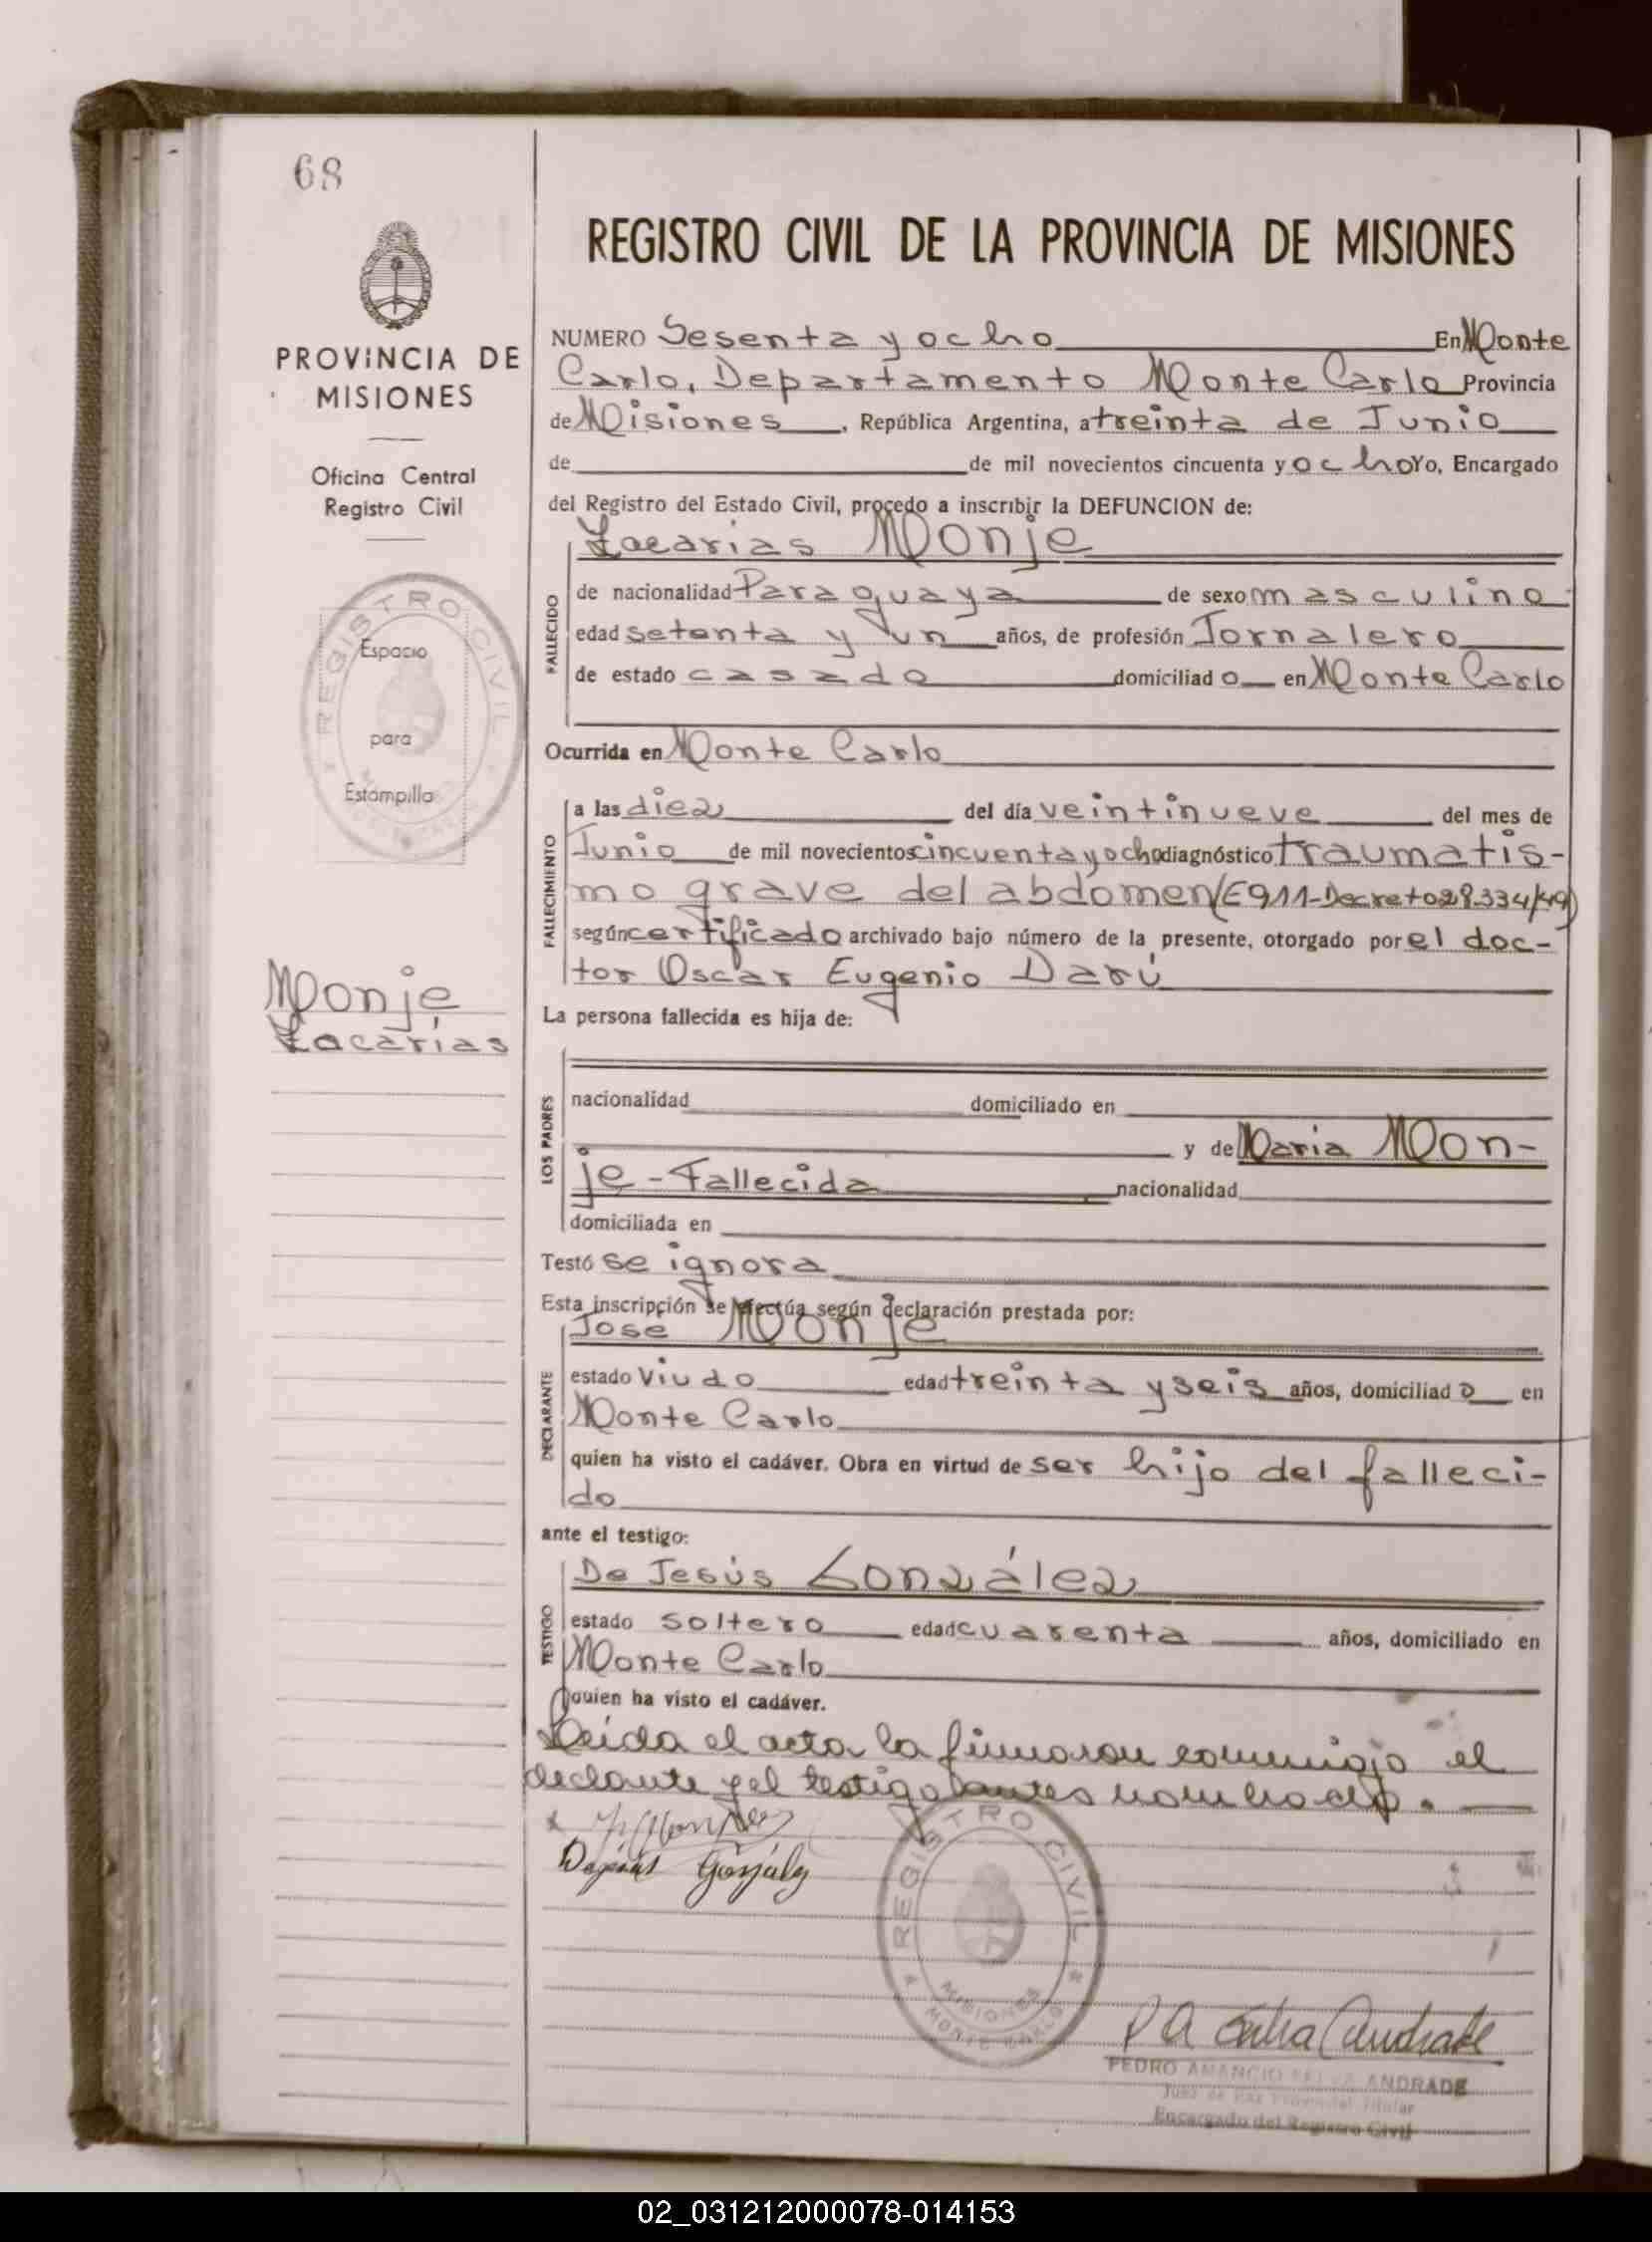 68
PROVINCIA DE
MISIONES
Oficina Central
Registro Civil
REGISTRO CIVIL
Espacio
para
Estampilla
Monje
Zacarías
REGISTRO CIVIL DE LA PROVINCIA DE MISIONES
NUMERO Sesenta y ocho En Monte
Carlo, Departamento Monte Carlo Provincia
de Misiones, República Argentina, a treinta de Junio
de de mil novecientos cincuenta y ocho Yo, Encargado
del Registro del Estado Civil, procedo a inscribir la DEFUNCION de:
Zacarias Monje
FALLECIDO
de nacionalidad Paraguaya de sexo masculino
edad setenta y un años, de profesión Jornalero
de estado casado domiciliado en Monte Carlo
Ocurrida en Monte Carlo
FALLECIMIENTO
a las diez del día veintinueve del mes de
Junio de mil novecientos cincuenta y ocho diagnóstico traumatis-
mo grave del abdomen (E911-Decreto 28.334/49)
según certificado archivado bajo número de la presente, otorgado por el doc-
tor Oscar Eugenio Darú
La persona fallecida es hija de:
LOS PADRES
nacionalidad domiciliado en
y de Maria Mon-
je - Fallecida nacionalidad
domiciliada en
Testó se ignora
Esta inscripción se efectúa según declaración prestada por:
Jose Monje
DECLARANTE
estado Viudo edad treinta y seis años, domiciliado en
Monte Carlo
quien ha visto el cadáver. Obra en virtud de ser hijo del falleci-
do
ante el testigo:
De Jesús González
TESTIGO
estado soltero edad cuarenta años, domiciliado en
Monte Carlo
quien ha visto el cadáver.
Leída el acta la firmaron conmigo el
declante y el testigo antes nombrado.
González
REGISTRO CIVIL
MISIONES
MONTE CARLO
Andrade
PEDRO AMANCIO ANDRADE
Juez de Paz Provincial Titular
Encargado del Registro Civil
02_031212000078-014153